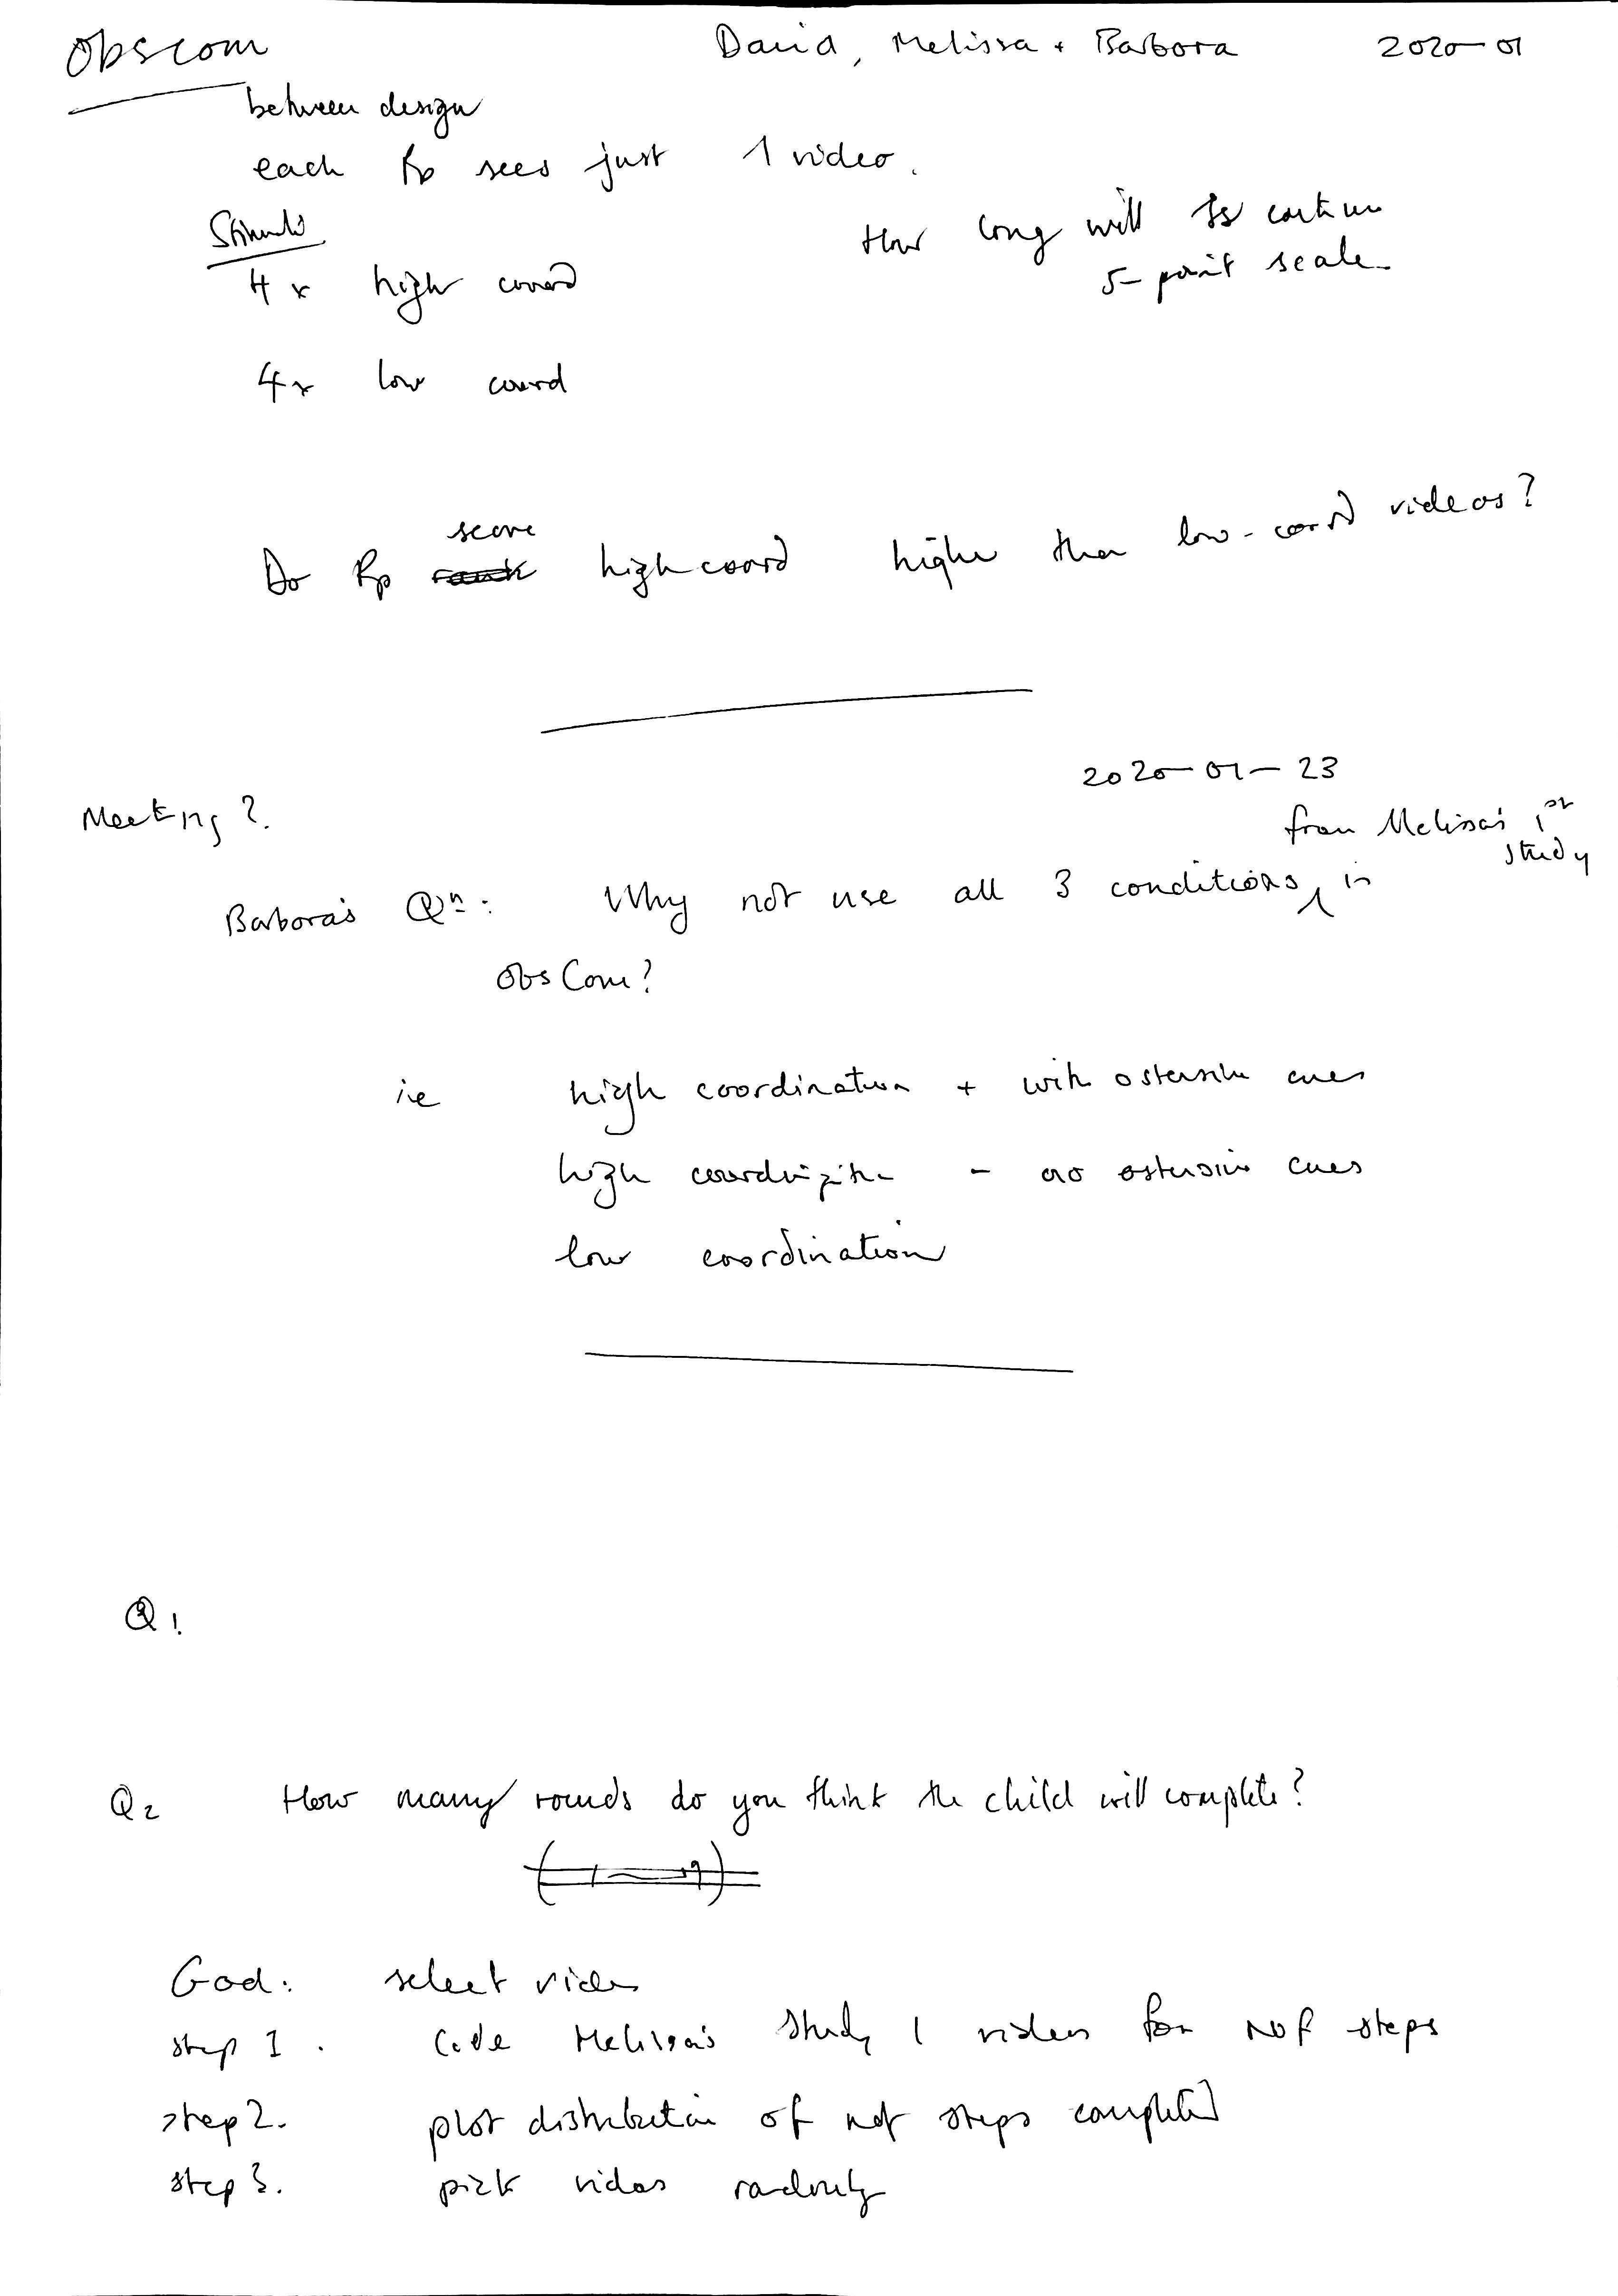 Obscom
David, Melissa + Barbora 2020-01
between design
each Pp sees just 1 video.
Stimuli
How long will Ss continue
5-point scale
4x high coord
4x low coord
score
Do Pp rank high coord higher than low-coord videos?
2020-01-23
Meeting?
from Melissa's 1st
study
Barbora's Qn: Why not use all 3 conditions in
ObsCom?
ie high coordination + with ostensive cues
high coordination - no ostensive cues
low coordination
Q1
Q2 How many rounds do you think the child will complete?
God: select video
step 1. Code Melissa's Study 1 videos for nof steps
step 2. plot distribution of nof steps completed
step 3. pick videos randomly